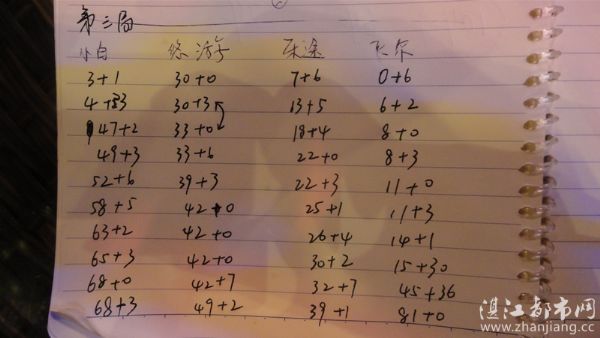 第三局
小白 悠游 乐途
3+1 30+0 7+6 0+6
30+3 13+5 6+2
47+2 33+0 18+4 8+0
49+3 33+6 22+0 8+3
52+6 39+3 22+3 11+0
58+5 42+0 25+1 11+3
63+2 42+0 26+4 14+1
65+3 42+0 30+2 15+30
68+0 42+7 32+7 45+36
68+3 49+2 39+1 81+0
湛江都市网
www.zhanjiang.cc